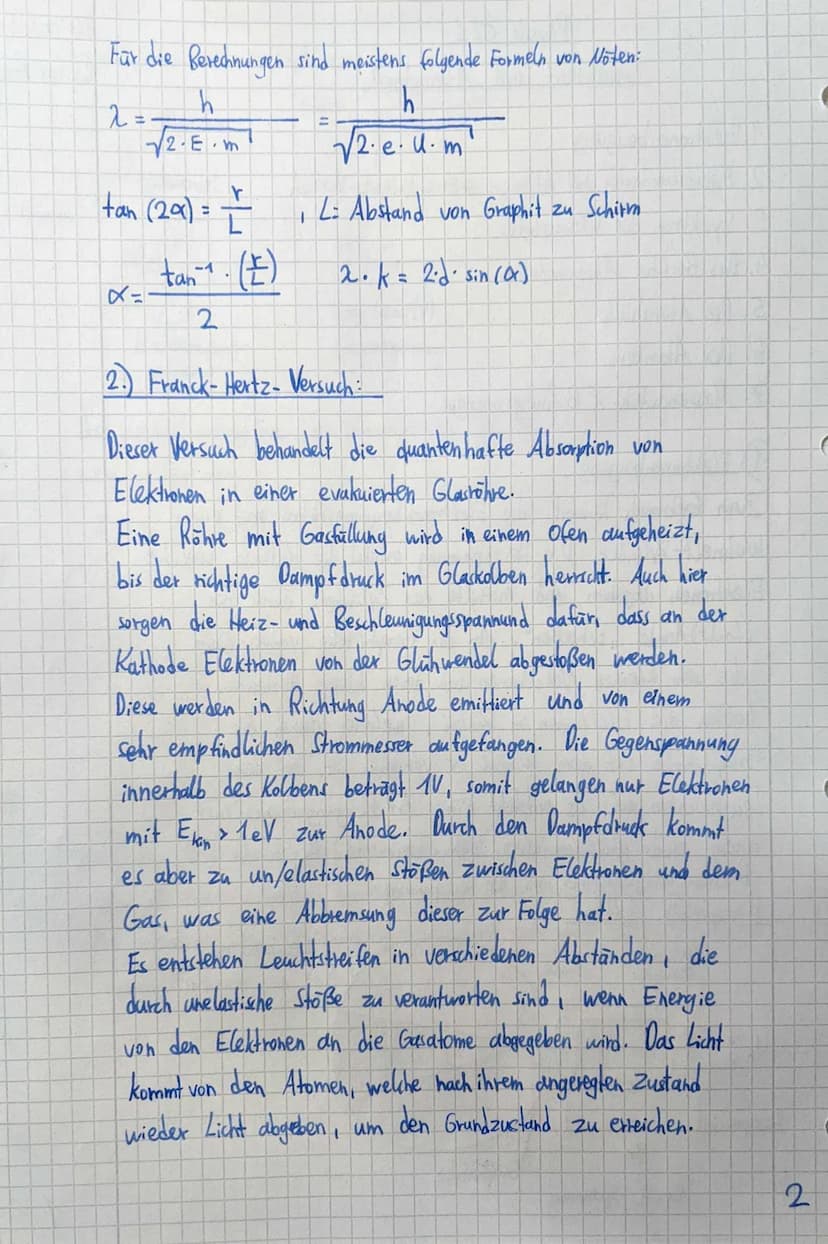 Für die Berechnungen sind meistens folgende Formeln von Nöten:
λ = h / √(2·E·m) = h / √(2·e·U·m)
tan (2α) = r/L , L: Abstand von Graphit zu Schirm
α = tan⁻¹ · (r/L) / 2 λ · k = 2·d· sin(α)
2.) Franck-Hertz-Versuch:
Dieser Versuch behandelt die quantenhafte Absorption von
Elektronen in einer evakuierten Glasröhre.
Eine Röhre mit Gasfüllung wird in einem Ofen aufgeheizt,
bis der richtige Dampfdruck im Glaskolben herrscht. Auch hier
sorgen die Heiz- und Beschleunigungsspannund dafür, dass an der
Kathode Elektronen von der Glühwendel abgestoßen werden.
Diese werden in Richtung Anode emittiert und von einem
sehr empfindlichen Strommesser aufgefangen. Die Gegenspannung
innerhalb des Kolbens beträgt 1V, somit gelangen nur Elektronen
mit E_kin > 1eV zur Anode. Durch den Dampfdruck kommt
es aber zu un/elastischen Stößen zwischen Elektronen und dem
Gas, was eine Abbremsung dieser zur Folge hat.
Es entstehen Leuchtstreifen in verschiedenen Abständen, die
durch unelastische Stöße zu verantworten sind, wenn Energie
von den Elektronen an die Gasatome abgegeben wird. Das Licht
kommt von den Atomen, welche nach ihrem angeregten Zustand
wieder Licht abgeben, um den Grundzustand zu erreichen.
2